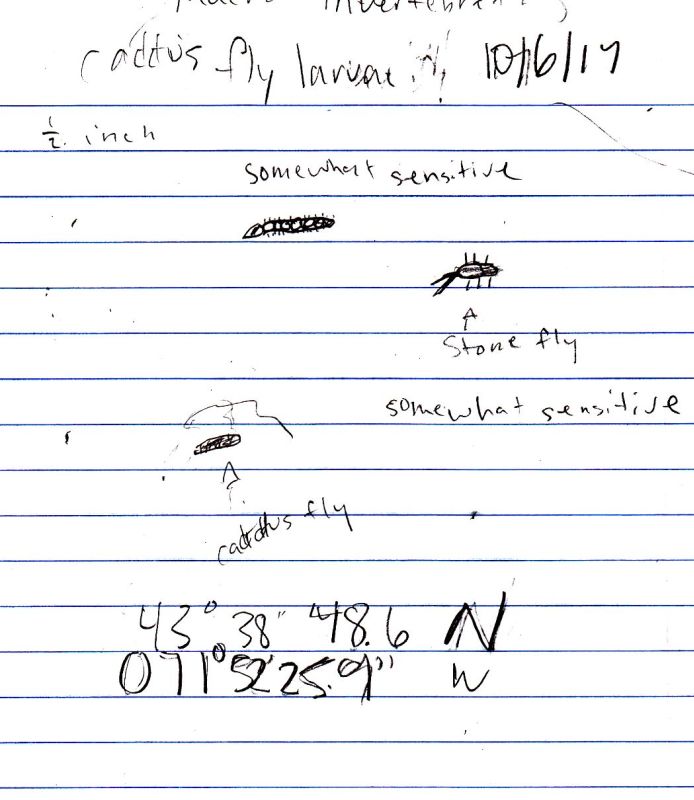 Macro Invertebrates
cadtus fly larvae 10/6/17
1/2 inch
somewhat sensitive
Stone fly
somewhat sensitive
caddtus fly
43° 38" 48.6 N
071° 52' 25.9" W